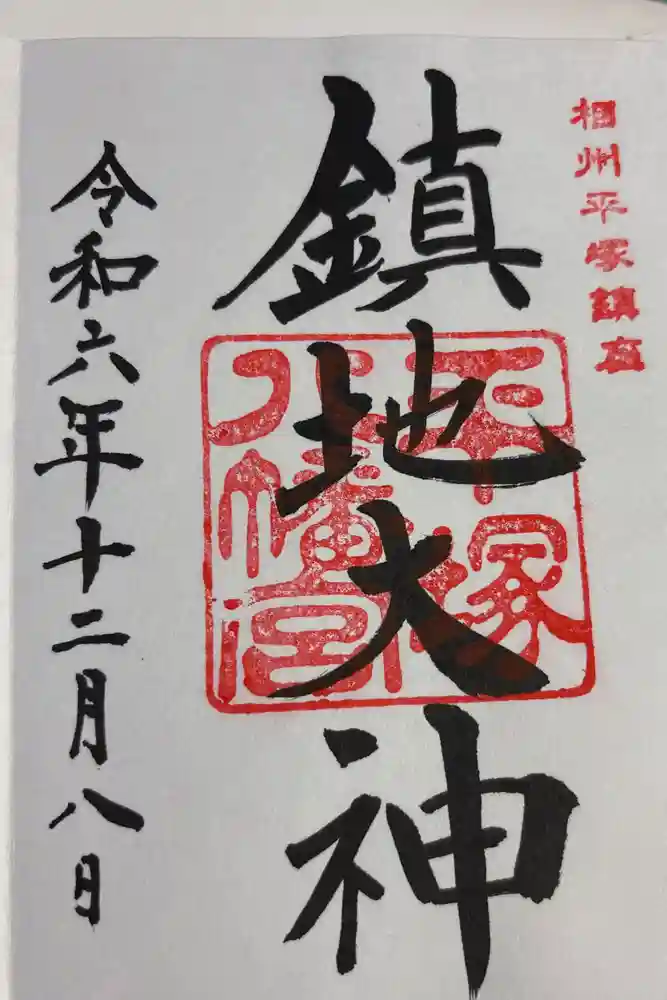 相州平塚鎮座
鎮地大神
平塚
八幡宮
令和六年十二月八日